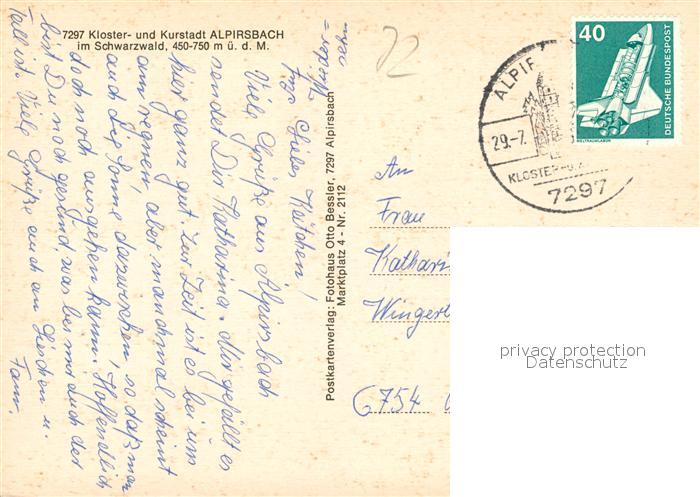 7297 Kloster- und Kurstadt ALPIRSBACH
im Schwarzwald, 450-750 m ü. d. M.
Liebes Kätchen!
Viele Grüße aus Alpirsbach
sendet Dir Katharina. Mir gefällt es
hier ganz gut. Zur Zeit ist es bei uns
am regnen, aber manchmal scheint
auch die Sonne dazwischen, so daß man
doch noch ausgehen kann. Hoffendlich
bist Du noch gesund was bei mir auch der
Fall ist. Viele Grüße auch an Lieschen u.
Fam.
Postkartenverlag: Fotohaus Otto Bessler, 7297 Alpirsbach
Marktplatz 4 - Nr. 2112
72
ALPIR
29.-7.
KLOSTER-U.
7297
40
DEUTSCHE BUNDESPOST
WELTRAUMLABOR
An
Frau
Kathari
Winger
6754
privacy protection
Datenschutz